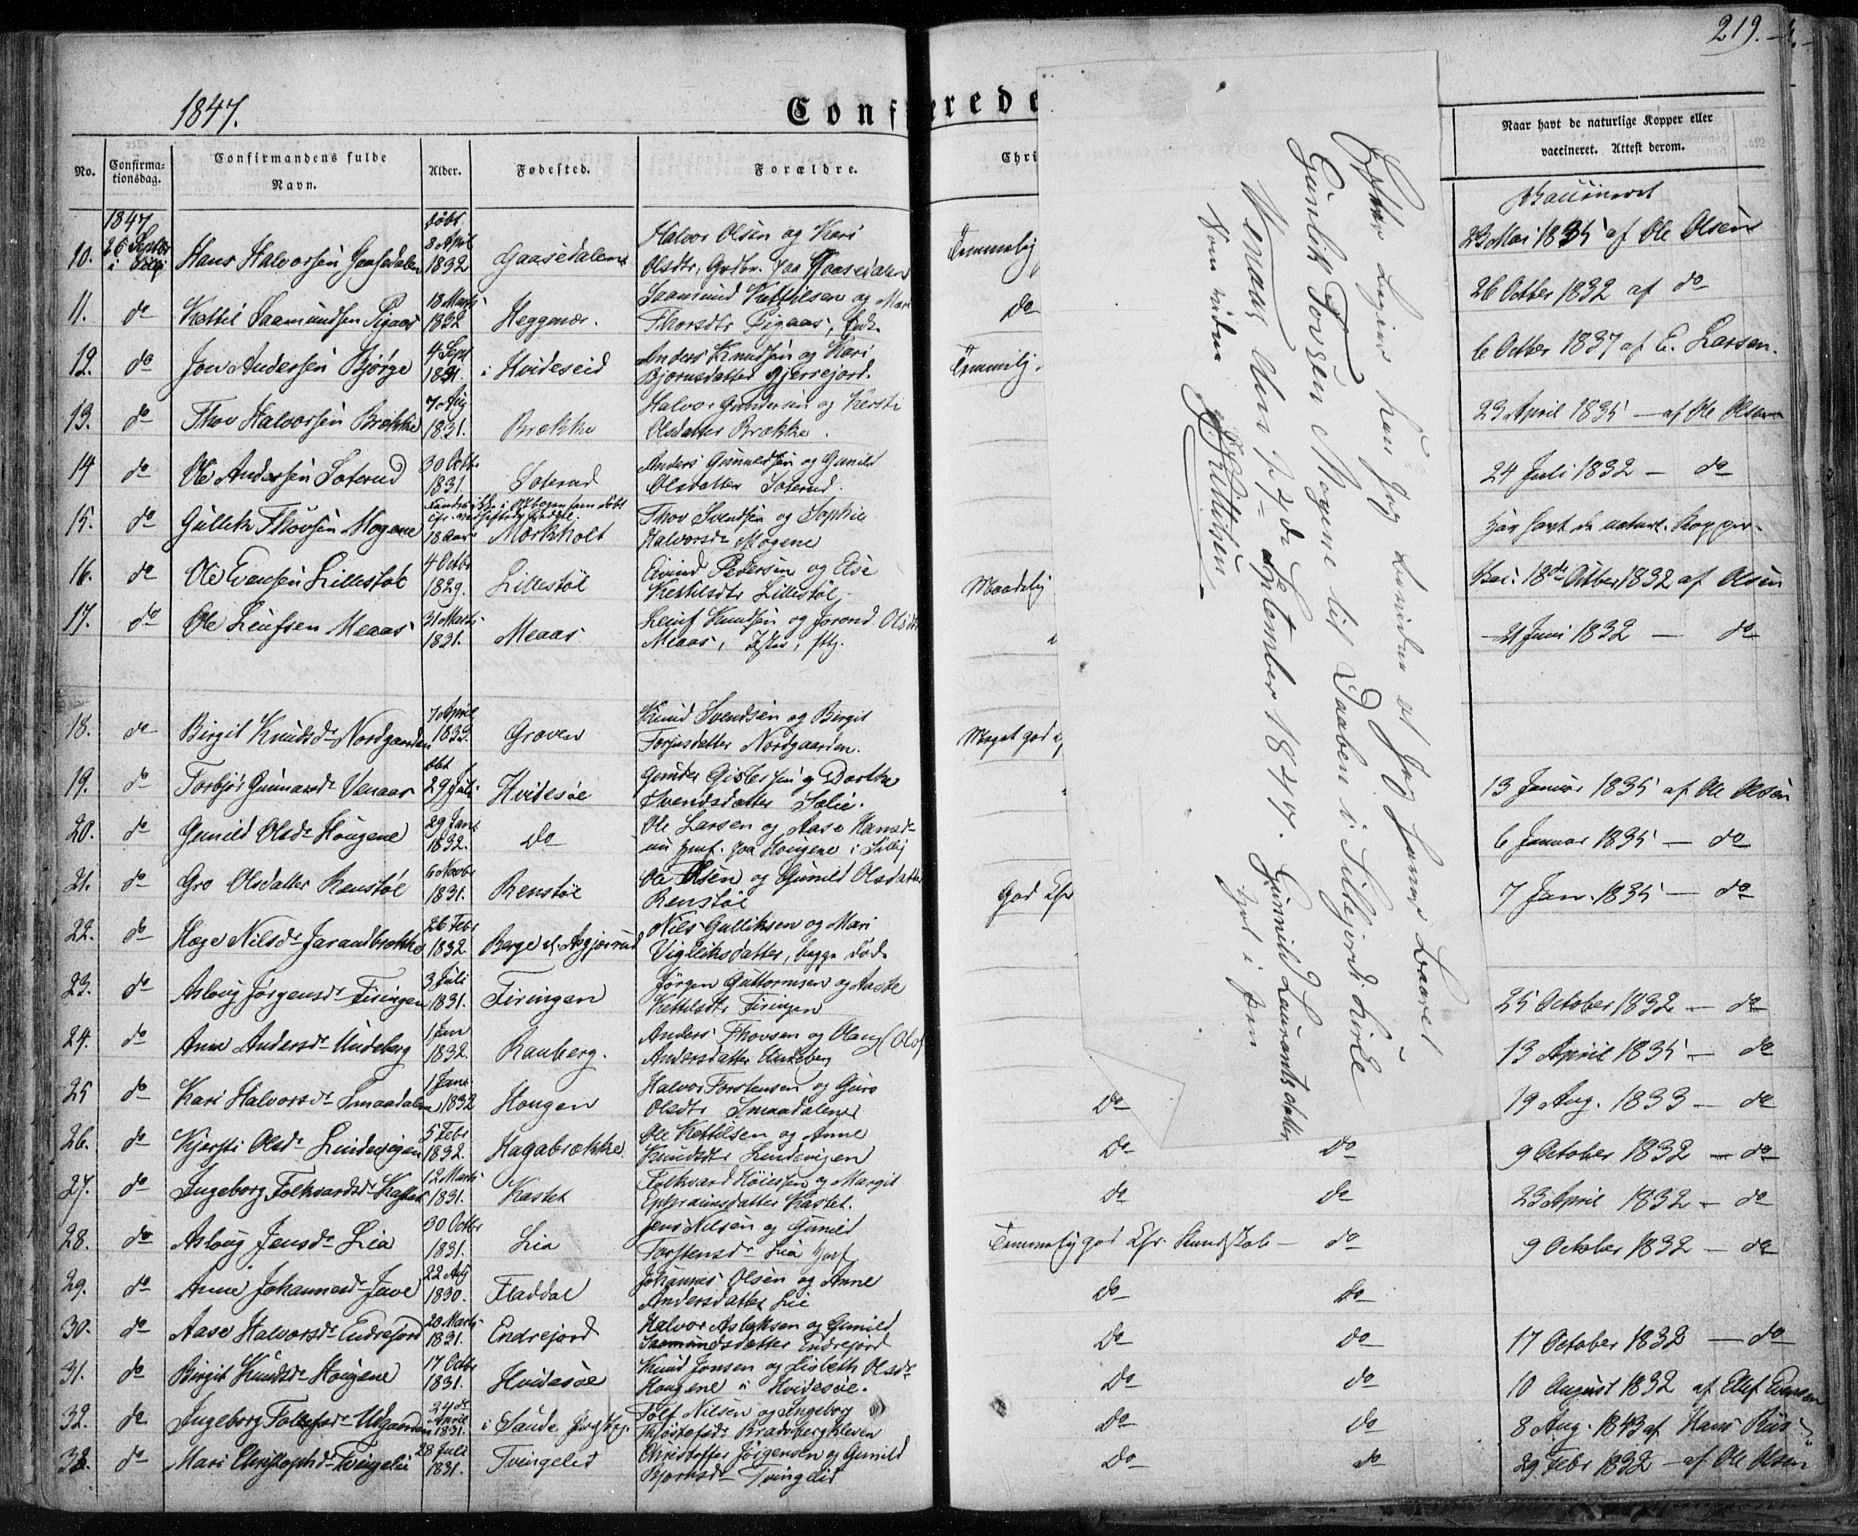 219.
1847.
Confirerede
No.
Confirma-
tionsdag.
Confirmandens fulde
Navn.
Alder.
Fødested.
Forældre.
Chri
Naar havt de naturlige Kopper eller
vaccineret. Attest derom.
1847
10. 26 Septbr i Sillej Hans Halvorsen Gaasedalen døbt 8 April 1832 Gaasedalen Halvor Olsen og Kari
Olsdtr, Grdbr. paa Gaasedalen Temmelig Vaccineret 23 Mai 1835 af Ole Olsen
11. do Kettil Saamundsen Pigaas 18 Marts 1832 Heggenæs. Saamund Kettilsen og Mari
Thorsdtr Pigaas, Do 26 Octber 1832 af do
12. do Jon Andersen Bjørge 4 Sept 1831. i Hvideseid Anders Knudsen og Kari
Bjørnsdatter Gjerrejord. Temmelig. 6 Octber 1837 af E. Larsen.
13. do Thov Halvorsen Brække 7 Aug 1831. Brække Halvor Gundersen og Kersti
Olsdatter Brække. 23 April 1835 - af Ole Olsen
14 do Ole Andersen Soterud 30 Octbr 1831. Soterud Anders Gunnildsen og Gunild
Olsdatter Soterud. 24 Juli 1832 - do
15. do Gullik Thovsen Mogene 18 Aar Mørkholt Thov Svendsen og Sophie
Halvorsdtr Mogene har havt de naturl. Kopper.
16. do Ole Evensen Lillestøl 4 Octbr 1829. Lillestøl Eivind Pedersen og Elve
Kettilsdtr Lillestøl. Maadelig Vac. 18de Octber 1832 af Olsen
17. do Ole Leufsen Meaas 31 Marts 1831. Meaas Leuf Knudsen og Jorond Olsdtr
Meaas, 21 Juni 1832 - do
18. do Birgit Knudsdr Nordgaarden 7 April 1832. Groven Knud Svendsen og Birgit
Torjusdatter Nordgaarden. Meget god
19. do Torbjør Gunnarsdr Venaas 29 Juli Hvidesøe Gunder Gislesen og Dorthe
Svendsdatter Sælie. 13 Januar 1835 af Ole Olsen
20. do Gunild Olsdr Hougene 29 Jan 1832. Do Ole Larsen og Aase Hansdr
nu Huusf. paa Hougene i Sillej 6 Januar 1835 - do
21. do Gro Olsdatter Renstøl 6 Novbr 1831. Renstøl Ole Olsen og Gunild Olsdatter
Renstøl God Chr 7 Jan. 1835 - do
22. do Hæge Nilsdr Jarandbrække 26 Febr 1832. Berge v. Asgjerrud Nils Gulliksen og Mari
Vigleiksdatter, begge døde
23. do Asloug Jørgensdr Firingen 3 Juli 1831. Firingen Jørgen Guttormsen og Aaste
Kettilsdtr Firingen 25 October 1832 - do
24. do Anne Andersdr Undeberg 1 Jan 1832. Rauberg. Anders Thovsen og Olaug (Olof
Andersdatter Undeberg 13 April 1835 - do
25 do Kari Halvorsdr Smaadalen 1 Jan 1832 Hougen Halvor Torstensen og Guro
Olsdtr Smaadalene Do 19 Aug. 1833 - do
26. do Kjersti Olsdr Lindevigen 5 Febr 1832. Hagabrække. Ole Kettilsen og Anne
Knudsdtr Lindevigen Do Do 9 October 1832 - do
27. do Ingeborg Folkvardsdr Kastet 12 Marts 1831. Kastet Folkvard Høiesen og Margit
Ephraimsdatter Kastet. do do 23 April 1832 - do
28. do Asloug Jensdr Lia 30 Octbr 1831. Lia Jens Nilsen og Gunild
Torstensdr Lia Temmelig god Chr. Kundskab - do 9 October 1832 - do
29. do Anne Johannesdr Jave 22 Aug 1830. Fladdal Johannes Olsen og Anne
Andersdatter Lie Do do
30. do Aase Halvorsdr Endrejord 20 Marts 1831. Endrejord Halvor Aslaksen og Gunild
Saamundsdatter Endrejord Do do 17 October 1832 - do
31. do Birgit Knudsdr Hougene 17 Octbr 1831. Hvidesøe Knud Jonsen og Lisbeth Olsdr
Hougene i Hvidesøe. Do do 10 August 1832 af Ellef Evensen
32. do Ingeborg Tolfsdr Udgaarden 24de April 1831. i Saude Tolf Nilsen og Ingeborg
Bradsbergkleven Do do 8 Aug. 1843 af Hans Riis
33. do Mari Christophdr Tvingelie 28 Juli 1831. Tvingelid Christoffer Jørgensen og Gunild
Bjørnsdr Tvingelid Do do 29 Febr 1832 - af Ole Olsen
Efter Logier kan jeg at Jeg Laaret
Gunlik Tovsen Mogene til Daaben i Sillejord Kirke
Venaas den 27de September 1847. Gunnild Laurantsdatter
som viden
Kittilsen